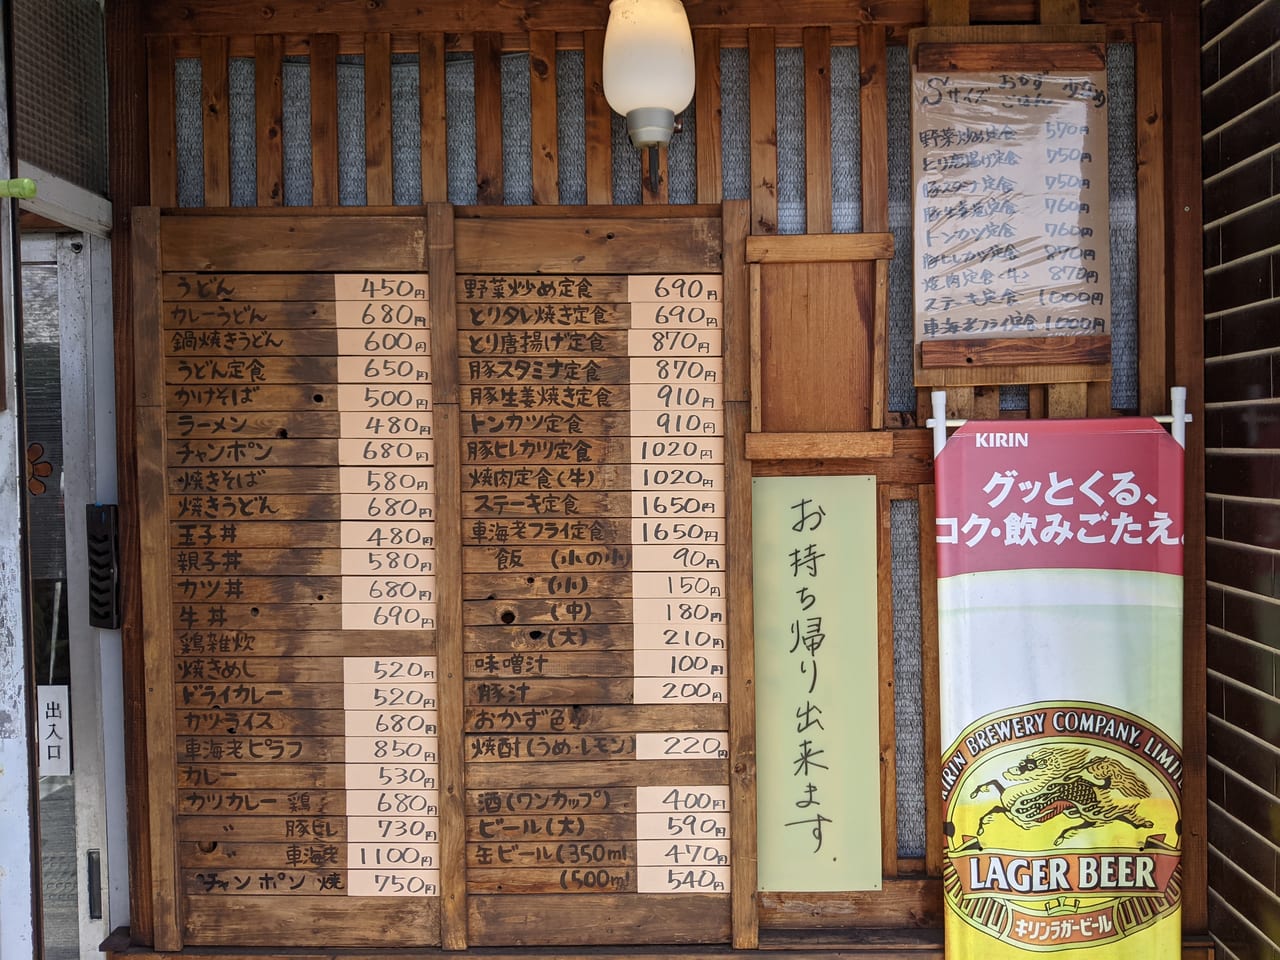 うどん 450円
カレーうどん 680円
鍋焼きうどん 600円
うどん定食 650円
かけそば 500円
ラーメン 480円
チャンポン 680円
焼きそば 580円
焼きうどん 680円
玉子丼 480円
親子丼 580円
カツ丼 680円
牛丼 690円
鶏雑炊
焼きめし 520円
ドライカレー 520円
カツライス 680円
車海老ピラフ 850円
カレー 530円
カツカレー 鶏 680円
〃 豚ヒレ 730円
〃 車海老 1100円
チャンポン焼 750円
野菜炒め定食 690円
とりタレ焼き定食 690円
とり唐揚げ定食 870円
豚スタミナ定食 870円
豚生姜焼き定食 910円
トンカツ定食 910円
豚ヒレカツ定食 1020円
焼肉定食(牛) 1020円
ステーキ定食 1650円
車海老フライ定食 1650円
飯 (小の小) 90円
(小) 150円
(中) 180円
(大) 210円
味噌汁 100円
豚汁 200円
おかず色
焼酎(うめ・レモン) 220円
酒(ワンカップ) 400円
ビール(大) 590円
缶ビール(350ml 470円
(500ml 540円
お持ち帰り出来ます
Sサイズ おかず ごはん 少なめ
野菜炒め定食 570円
とり唐揚げ定食 750円
豚スタミナ定食 750円
豚生姜焼定食 760円
トンカツ定食 760円
豚ヒレカツ定食 870円
焼肉定食<牛> 870円
ステーキ定食 1000円
車海老フライ定食 1000円
KIRIN
グッとくる、
コク・飲みごたえ。
KIRIN BREWERY COMPANY, LIMITE
LAGER BEER
キリンラガービール
出入口